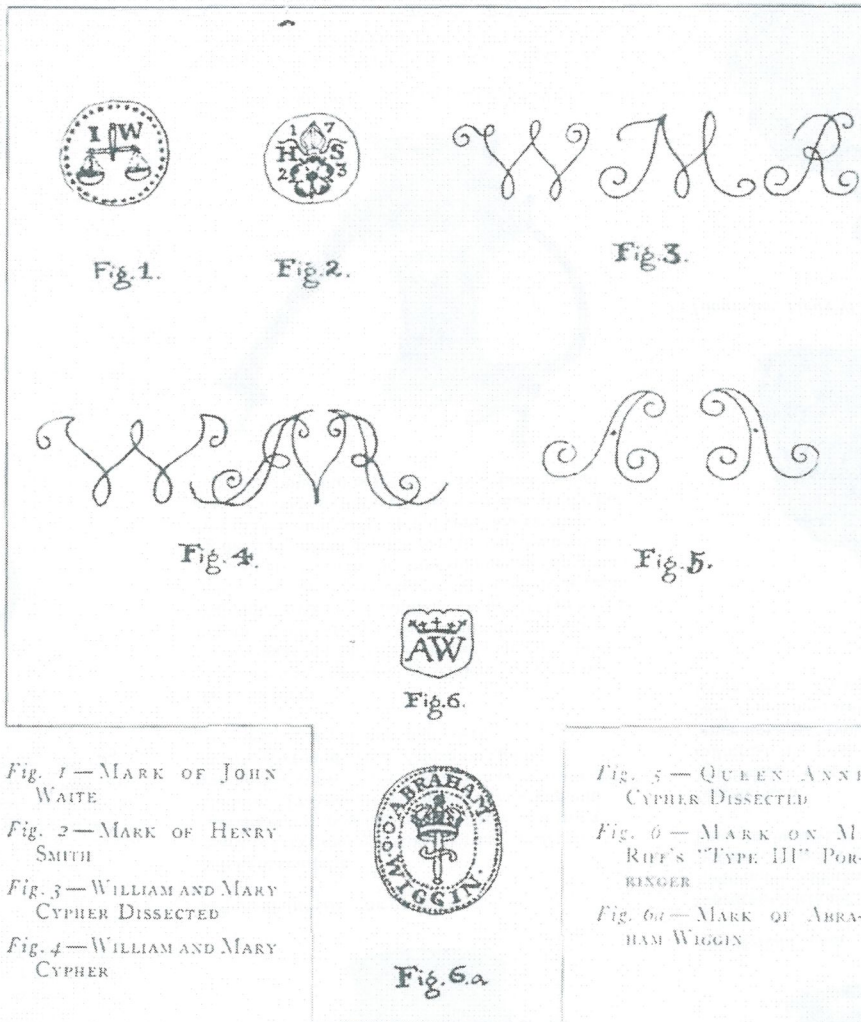 I W
1 7
H S
2 3
W M R
Fig.1.
Fig.2.
Fig.3.
Fig.4.
Fig.5.
AW
Fig.6.
Fig. 1—MARK OF JOHN
WAITE
Fig. 2—MARK OF HENRY
SMITH
Fig. 3—WILLIAM AND MARY
CYPHER DISSECTED
Fig. 4—WILLIAM AND MARY
CYPHER
ABRAHAM
WIGGIN.
Fig.6.a
Fig. 5—QUEEN ANNE
CYPHER DISSECTED
Fig. 6—MARK ON M
RIFF'S "TYPE III" POR-
RINGER
Fig. 6a—MARK OF ABRA-
HAM WIGGIN